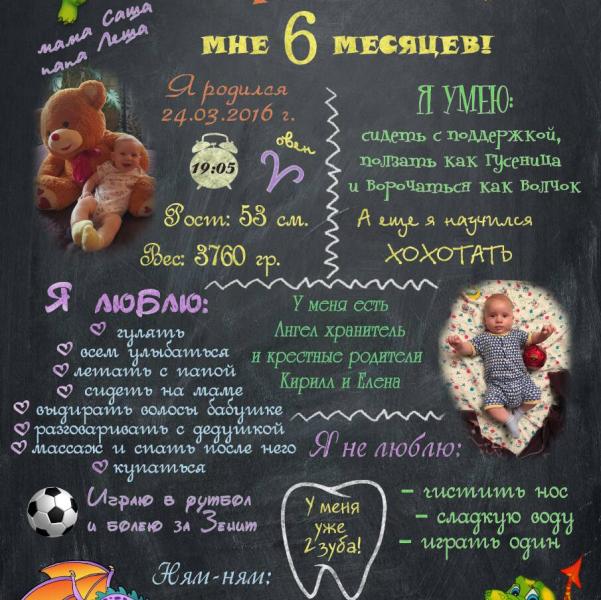 мама Саша
папа Леша
МНЕ 6 МЕСЯЦЕВ!
Я родился
24.03.2016 г.
19:05
овен
Рост: 53 см.
Вес: 3760 гр.
Я УМЕЮ:
сидеть с поддержкой,
ползать как Гусеница
и Ворочаться как Волчок
А еще я научился
ХОХОТАТЬ
Я люблю:
гулять
всем улыбаться
летать с папой
сидеть на маме
выдирать волосы бабушке
разговаривать с дедушкой
массаж и спать после него
купаться
У меня есть
Ангел хранитель
и крестные родители
Кирилл и Елена
Я не люблю:
– чистить нос
– сладкую воду
– играть один
Играю в футбол
и болею за Зенит
У меня
уже
2 зуба!
Ням-ням: